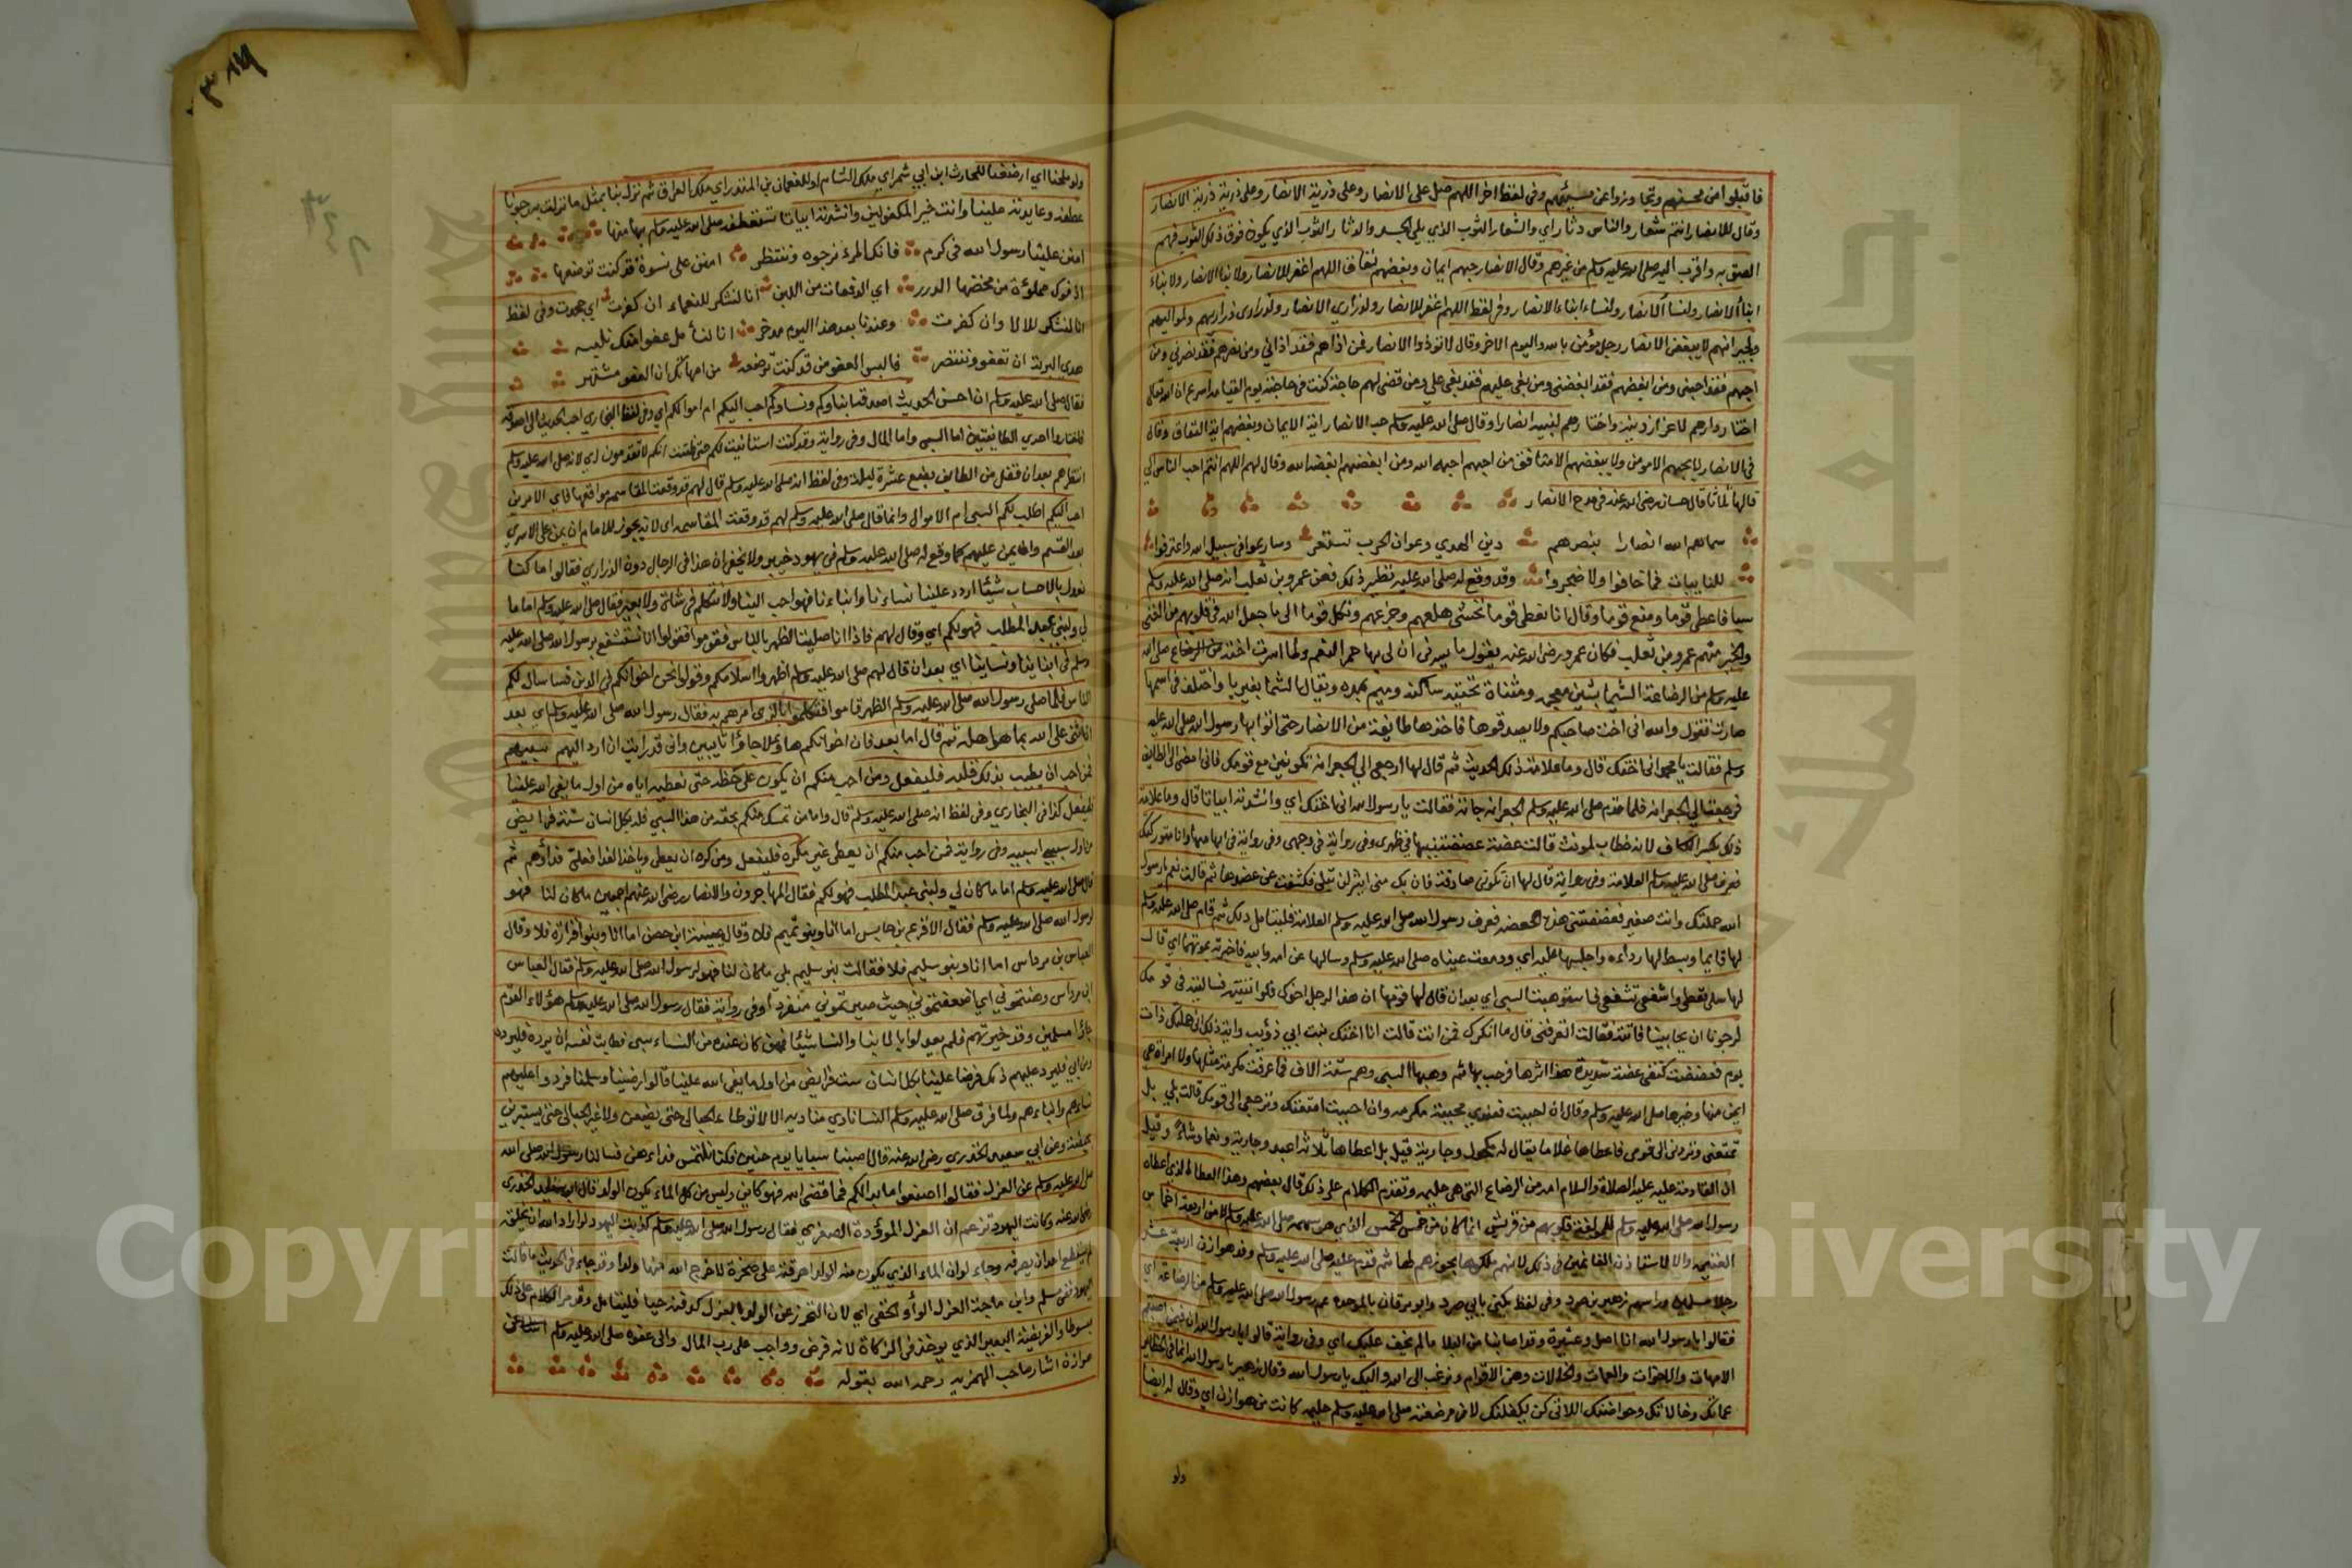 فاقبلوا من محسنهم وتجاوزوا عن مسيئهم وفى لفظ اخر اللهم صل على الانصار وعلى ذرية الانصار وعلى ذرية ذرية الانصار
وقال للانصار انتم شعار والناس دثار اي والشعار الثوب الذي يلى الجسد والدثار الثوب الذي يكون فوق ذلك الثوب فهم
الصق به واقرب اليه صلى الله عليه وسلم من غيرهم وقال الانصار حبهم ايمان وبغضهم نفاق اللهم اغفر للانصار ولابنا الانصار ولابناء
ابناء الانصار ولنسا الانصار ولنساء ابناء الانصار وفى لفظ اللهم اغفر للانصار ولذراري الانصار ولذراري ذراريهم ولمواليهم
ولجيرانهم لا يبغض الانصار رجل مؤمن بالله واليوم الاخر وقال لا توذوا الانصار فمن اذاهم فقد اذاني ومن نصرهم فقد نصرني ومن
احبهم فقد احبنى ومن ابغضهم فقد ابغضنى ومن بغى عليهم فقد بغى على ومن قضى لهم حاجة كنت فى حاجته يوم القيامة
اختار دارهم لاعزاز دينه واختارهم لنبيه انصارا وقال صلى الله عليه وسلم حب الانصار اية الايمان وبغضهم اية النفاق وقال
فى الانصار لا يحبهم الا مومن ولا يبغضهم الا منافق من احبهم احبه الله ومن ابغضهم ابغضه الله وقال لهم اللهم انتم احب الناس الي
قالها ثلاثا قال حسان رضى الله عنه فى مدح الانصار
سماهم الله انصارا بنصرهم دين الهدي وعوان الحرب تستعر وسارعوا فى سبيل الله واعترفوا
للنايبات فما خافوا ولا ضجروا وقد وقع له صلى الله عليه نظير ذلك فعن عمرو بن تغلب انه صلى الله عليه وسلم
سبا فاعطى قوما ومنع قوما وقال انا نعطى قوما نخشى هلعهم وجزعهم ونكل قوما الى ما جعل الله فى قلوبهم من الغنى
والخير منهم عمرو بن تغلب فكان عمرو رضى الله عنه يقول ما يسرنى ان لى بها حمر النعم ولما اسرت اخته من الرضاع صلى الله
عليه وسلم من الرضاعة الشيما بشين معجمه ومثناة تحتية ساكنة وميم بمده ويقال الشما بغير يا واختلف فى اسمها
صارت تقول والله انى اخت صاحبكم ولا يصدقوها فاخذها طايفة من الانصار حتى اتوا بها رسول الله صلى الله عليه
وسلم فقالت يا محمد انى اختك قال وما علامة ذلك الحديث ثم قال لها ارجعى الى الجعرانه تكونين مع قومك فانى امضى الى الطايف
فرجعت الى الجعرانه فلما قدم صلى الله عليه وسلم الجعرانه جاته فقالت يا رسول الله انى اختك اي وانشدته ابياتا قال وما علامة
ذلك بكسر الكاف لانه خطاب لمونث قالت عضة عضضتنيها فى ظهرى وفى رواية فى وجهى وفى رواية فى ابهامها وانا متوركتك
فعرف صلى الله عليه وسلم العلامة وفى رواية قال لها ان تكونى صادقة فان بك منى اثرا لن يبلى فكشفت عن عضدها ثم قالت نعم يا رسول
الله حملتك وانت صغير فعضضتنى هذه العضه فعرف رسول الله صلى الله عليه وسلم العلامة فليتامل ذلك ثم قام صلى الله عليه وسلم
لها قايما وبسط لها رداءه واجلسها عليه اي ودمعت عيناه صلى الله عليه وسلم وسالها عن امه وابيه فاخبرته بموتهما اي قال
لها سلى تعطى واشفعى تشفعى فاستوهبته السبى اي بعد ان قال لها قومها ان هذا الرجل اخوك فلو اتيتيه فسالتيه فى قومك
لرجونا ان يحابينا فاتته فقالت اتعرفنى قال ما انكرك فمن انت قالت انا اختك بنت ابي ذؤيب واية ذلك انى حملتك ذات
يوم فعضضت كتفى عضة شديدة هذا اثرها فرحب بها ثم وهبها السبى وهم ستة الاف فما عرفت مكرمة مثلها ولا امراة هى
ايمن منها وخيرها صلى الله عليه وسلم وقال ان احببت فعندي محببة مكرمه وان احببت امتعتك وترجعى الى قومك قالت بلي بل
تمتعنى وتردنى الى قومى فاعطاها غلاما يقال له مكحول وجارية قيل بل اعطاها ثلاثة اعبد وجارية ونعما وشاء وقيل
ان القادمة عليه عليه الصلاة والسلام امه من الرضاع التى هى حليمه وتقدم الكلام على ذلك قال بعضهم وهذا العطا الذي اعطاه
رسول الله صلى الله عليه وسلم للمولفة قلوبهم من قريش انما كان من خمس الخمس الذي هو سهمه صلى الله عليه وسلم لا من اربعة اخماس
الغنيمه والا لاستاذن الغانمين فى ذلك لانهم ملكوها بحوزهم لها ثم قدم عليه صلى الله عليه وسلم وفد هوازن اربعة عشر
رجلا مسلمين وراسهم زهير بن صرد وفى لفظ يكنى بابي صرد وابو برقان بالموحده عم رسول الله صلى الله عليه وسلم من الرضاعة اي
فقالوا يا رسول الله انا اصل وعشيرة وقد اصابنا من البلا ما لم يخف عليك اي وفى رواية قالوا يا رسول الله ان فيمن اصبتم
الامهات والاخوات والعمات والخالات وهن الاقوام ونرغب الى الله واليك يا رسول الله وقال زهير يا رسول الله انما فى الحظاير
عماتك وخالاتك وحواضنك اللاتى كن يكفلنك لان مرضعته صلى الله عليه وسلم حليمه كانت من هوازن اي وقال له ايضا
ولو
ولو ملحنا اي ارضعنا للحارث ابن ابي شمر اي ملك الشام او للنعمان بن المنذر اي ملك العراق ثم نزل بنا بمثل ما نزلت به رجونا
عطفه وعايدته علينا وانت خير المكفولين وانشدته ابياتا تستعطفه صلى الله عليه وسلم بها منها
امنن علينا رسول الله فى كرم فانك المرء نرجوه وننتظر امنن على نسوة قد كنت ترضعها
اذ فوك مملوءة من مخضها الدرر اي الدفعات من اللبن انا لنشكر للنعماء ان كفرت اي جحدت وفى لفظ
انا لنشكر للالا وان كفرت وعندنا بعد هذا اليوم مدخر انا لنأمل عفوا منك تلبسه
هدي البرية ان تعفو وتنتصر فالبس العفو من قد كنت ترضعه من امهاتك ان العفو مشتهر
فقال صلى الله عليه وسلم ان احسن الحديث اصدقه ابناوكم ونساوكم احب اليكم ام اموالكم اي وفى لفظ البخاري احب الحديث الى اصدقه
فاختاروا احدي الطايفتين اما السبى واما المال وفى رواية وقد كنت استانيت بكم حتى ظننت انكم لا تقدمون اي لانه صلى الله عليه وسلم
انتظرهم بعد ان قفل من الطايف بضع عشرة ليلة وفى لفظ انه صلى الله عليه وسلم قال لهم قد وقعت المقاسم مواقعها فاي الامرين
احب اليكم اطلب لكم السبى ام الاموال وانما قال صلى الله عليه وسلم لهم قد وقعت المقاسم اي لانه يجوز للامام ان يمن على الاسري
بعد القسم وانما يمن عليهم كما وقع له صلى الله عليه وسلم فى يهود خيبر ولا يخفى ان هذا فى الرجال دون الذراري فقالوا ما كنا
نعدل بالاحساب شيئا اردد علينا نساءنا وابناءنا فهو احب الينا ولا نتكلم فى شاة ولا بعير فقال صلى الله عليه وسلم اما ما
لى ولبنى عبد المطلب فهو لكم اي وقال لهم فاذا انا صليت الظهر بالناس فقوموا فقولوا انا نستشفع برسول الله صلى الله عليه
وسلم فى ابناينا ونساينا اي بعد ان قال لهم صلى الله عليه وسلم اظهروا اسلامكم وقولوا نحن اخوانكم فى الدين فساسال لكم
الناس فلما صلى رسول الله صلى الله عليه وسلم الظهر قاموا فتكلموا بالذى امرهم به فقال رسول الله صلى الله عليه وسلم اي بعد
ان اثنى على الله بما هو اهله ثم قال اما بعد فان اخوانكم هاولا جاؤا تايبين وانى قد رايت ان ارد اليهم سبيهم
فمن احب ان يطيب بذلك قلبه فليفعل ومن احب منكم ان يكون على حظه حتى نعطيه اياه من اول ما يفى الله علينا
فليفعل كذا فى البخاري وفى لفظ انه صلى الله عليه وسلم قال واما من تمسك منكم بحقه من هذا السبى فله بكل انسان ستة فرايض
من اول سبى اسبيه وفى رواية فمن احب منكم ان يعطى غير مكره فليفعل ومن كره ان يعطى وياخذ الفدا فعلى فداؤهم ثم
قال صلى الله عليه وسلم اما ما كان لي ولبنى عبد المطلب فهو لكم فقال المهاجرون والانصار رضى الله عنهم اجمعين ما كان لنا فهو
لرسول الله صلى الله عليه وسلم فقال الاقرع بن حابس اما انا وبنو تميم فلا وقال عيينة ابن حصن اما انا وبنو فزارة فلا وقال
العباس بن مرداس اما انا وبنو سليم فلا فقالت بنو سليم بلى ما كان لنا فهو لرسول الله صلى الله عليه وسلم فقال العباس
ابن مرداس وهنتمونى اي اضعفتمونى حيث صيرتمونى منفردا وفى رواية فقال رسول الله صلى الله عليه وسلم هؤلاء القوم
جاؤا مسلمين وقد خيرتهم فلم يعدلوا بالابنا والنسا شيئا فمن كان عنده من النساء سبى فطابت نفسه ان يرده فليرده
ومن ابى فليرد عليهم ذلك قرضا علينا بكل انسان ست فرايض من اول ما يفى الله علينا قالوا رضينا وسلمنا فردوا عليهم
نساءهم وابناءهم ولما فرق صلى الله عليه وسلم النسا نادي مناديه الا لا توطا الحبالى حتى يضعن ولا غير الحبالى حتى يستبرين
بحيضة وعن ابي سعيد الخدري رضى الله عنه قال اصبنا سبايا يوم حنين فكنا نلتمس فداءهن فسالنا رسول الله صلى الله
عليه وسلم عن العزل فقال اصنعوا ما بدالكم فما قضى الله فهو كاين وليس من كل الماء يكون الولد قال ابو سعيد الخدري
رضى الله عنه وكانت اليهود تزعم ان العزل الموؤدة الصغري فقال رسول الله صلى الله عليه وسلم كذبت اليهود لو اراد الله ان يخلقه
لم يستطع احد ان يصرفه وجاء لو ان الماء الذي يكون منه الولد اهرقته على صخرة لاخرج الله منها ولدا وقد جاء فى الحديث ما قالت
اليهود ففى مسلم وابن ماجة العزل الوأد الخفى اي لان التحرز عن الولد بالعزل كدفنه حيا فليتامل وقد مر الكلام على ذلك
مبسوطا والفريضة البعير الذي يوخذ فى الزكاة لانه فرض وواجب على رب المال والى عفوه صلى الله عليه وسلم
هوازن اشار صاحب الهمزيه رحمه الله بقوله
Copyright © King Saud University